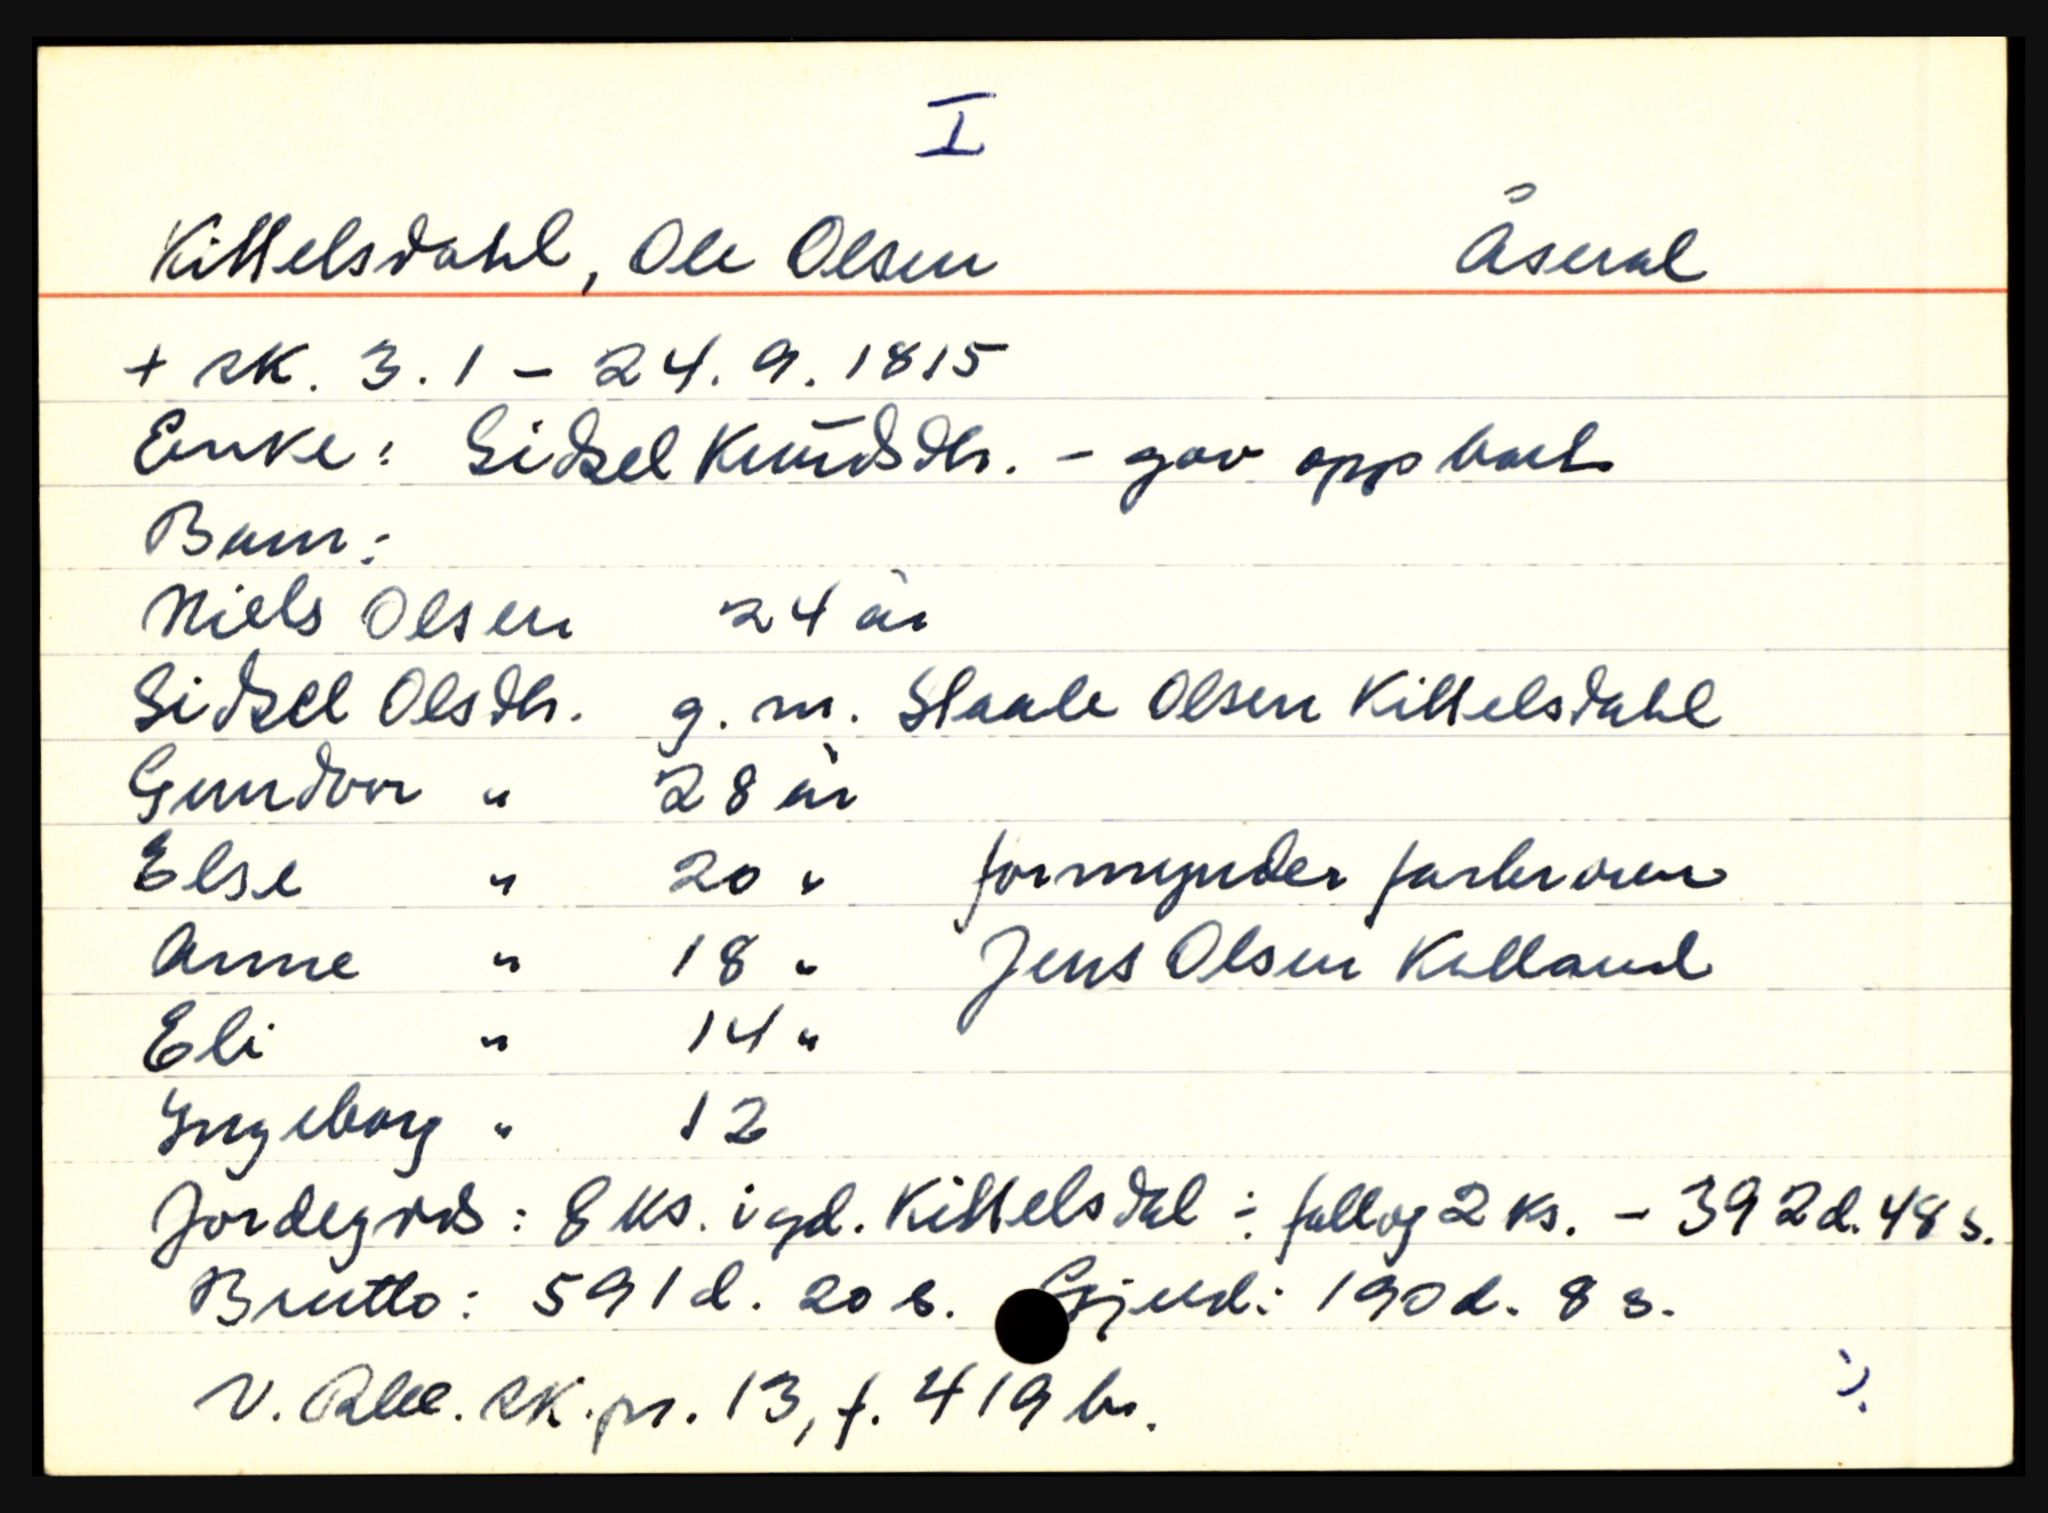 I
Kittelsdahl, Ole Olsen Åseral
+ sk. 3.1 - 24.9.1815
Enke: Sidsel Knudsdtr. - gav opp boet
Barn:
Niels Olsen 24 år
Sidsel Olsdtr. g.m. Staale Olsen Kittelsdahl
Gundvor " 28 år
Else " 20 " formynder farbroren
Anne " 18 " Jens Olsen Kalland
Eli " 14 "
Ingeborg " 12
Jordegods: 8 ks. i gd. Kittelsdal ÷ fallog 2 ks. - 392 d. 48 s.
Brutto: 591 d. 20 s. Gjeld: 190 d. 8 s.
V. Råb. sk.pr. 13, f. 419 b.